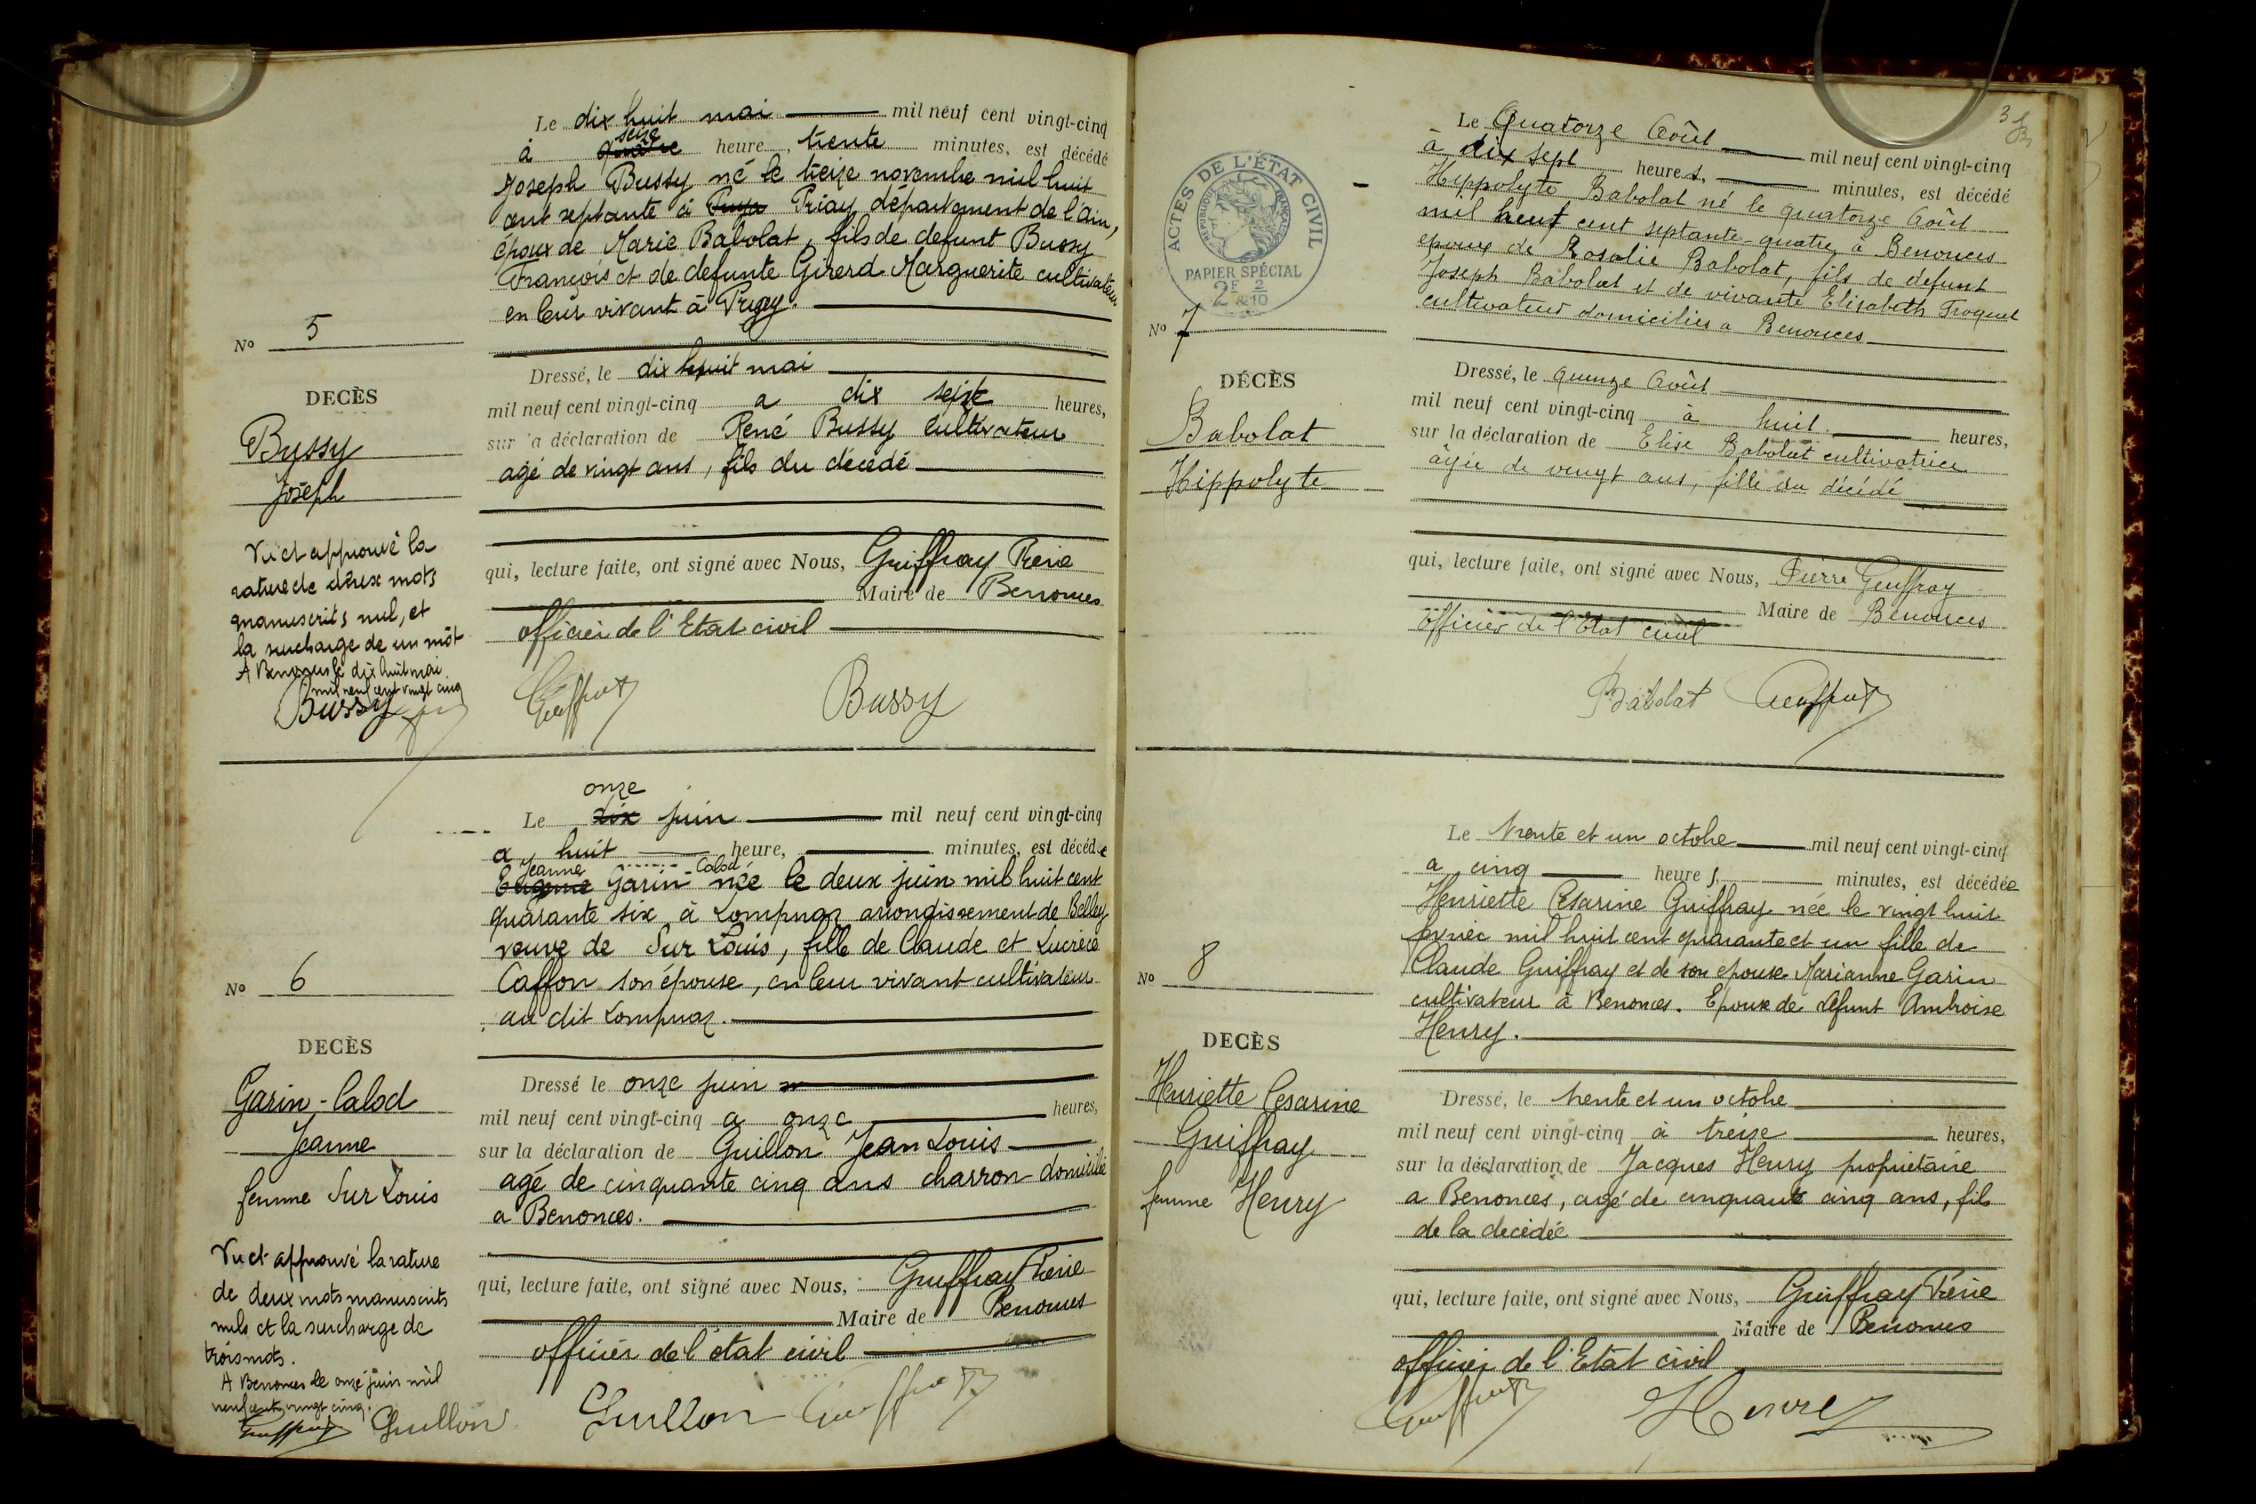 Le dix huit mai mil neuf cent vingt-cinq
seize
à quatre heure, trente minutes, est décédé
Joseph Bussy né le treize novembre mil huit
cent septante à Priay, département de l'Ain,
époux de Marie Babolat, fils de defunt Bussy
François et de defunte Girerd Marguerite cultivateurs
en leur vivant à Priay.
No 5
DECÈS
Bussy
Joseph
Dressé, le dix huit mai
mil neuf cent vingt-cinq a dix sept heures,
sur la déclaration de René Bussy cultivateur
agé de vingt ans, fils du décédé
qui, lecture faite, ont signé avec Nous, Guiffray Pierre
Maire de Benonces
officier de l'Etat civil
Vu et approuvé la
rature de deux mots
manuscrits nul, et
la surcharge de un mot
A Benonces le dix huit mai
mil neuf cent vingt cinq
Bussy
Guiffray Bussy
onze
Le dix juin mil neuf cent vingt-cinq
a huit heure, minutes, est décédée
Jeanne Calod
Garin née le deux juin mil huit cent
quarante six, à Lompnaz arrondissement de Belley
veuve de Sur Louis, fille de Claude et Lucrèce
Caffon son épouse, en leur vivant cultivateur
au dit Lompnaz.
No 6
DECÈS
Garin-Calod
Jeanne
femme Sur Louis
Dressé le onze juin
mil neuf cent vingt-cinq a onze heures,
sur la déclaration de Guillon Jean Louis
agé de cinquante cinq ans charron domicilié
a Benonces.
qui, lecture faite, ont signé avec Nous, Guiffray Pierre
Maire de Benonces
officier de l'état civil
Vu et approuvé la rature
de deux mots manuscrits
nuls et la surcharge de
trois mots.
A Benonces le onze juin mil
neuf cent vingt cinq.
Guiffray Guillon
Guillon Guiffray
3
Le Quatorze Août mil neuf cent vingt-cinq
à dix sept heures, minutes, est décédé
Hippolyte Babolat né le quatorze Août
mil neuf cent septante-quatre à Benonces
epoux de Rosalie Babolat, fils de defunt
Joseph Babolat et de vivante Elisabeth Troquet
cultivateurs domiciliés a Benonces
ACTES DE L'ÉTAT CIVIL
RÉPUBLIQUE FRANÇAISE
PAPIER SPÉCIAL
2F & 2/10
No 7
DÉCÈS
Babolat
Hippolyte
Dressé, le quinze Août
mil neuf cent vingt-cinq à huit heures,
sur la déclaration de Elise Babolat cultivatrice
âgée de vingt ans, fille du décédé
qui, lecture faite, ont signé avec Nous, Pierre Guiffray
Maire de Benonces
officier de l'Etat civil
Babolat Guiffray
Le trente et un octobre mil neuf cent vingt-cinq
a cinq heures, minutes, est décédée
Henriette Césarine Guiffray née le vingt huit
mil huit cent quarante et un fille de
Claude Guiffray et de son epouse Marianne Garin
cultivateur à Benonces. Epouse de défunt Ambroise
Henry.
No 8
DECÈS
Henriette Cesarine
Guiffray
femme Henry
Dressé, le trente et un octobre
mil neuf cent vingt-cinq à treize heures,
sur la déclaration de Jacques Henry propriétaire
a Benonces, agé de cinquante cinq ans, fils
de la decédée
qui, lecture faite, ont signé avec Nous, Guiffray Pierre
Maire de Benonces
officier de l'Etat civil
Guiffray Henry